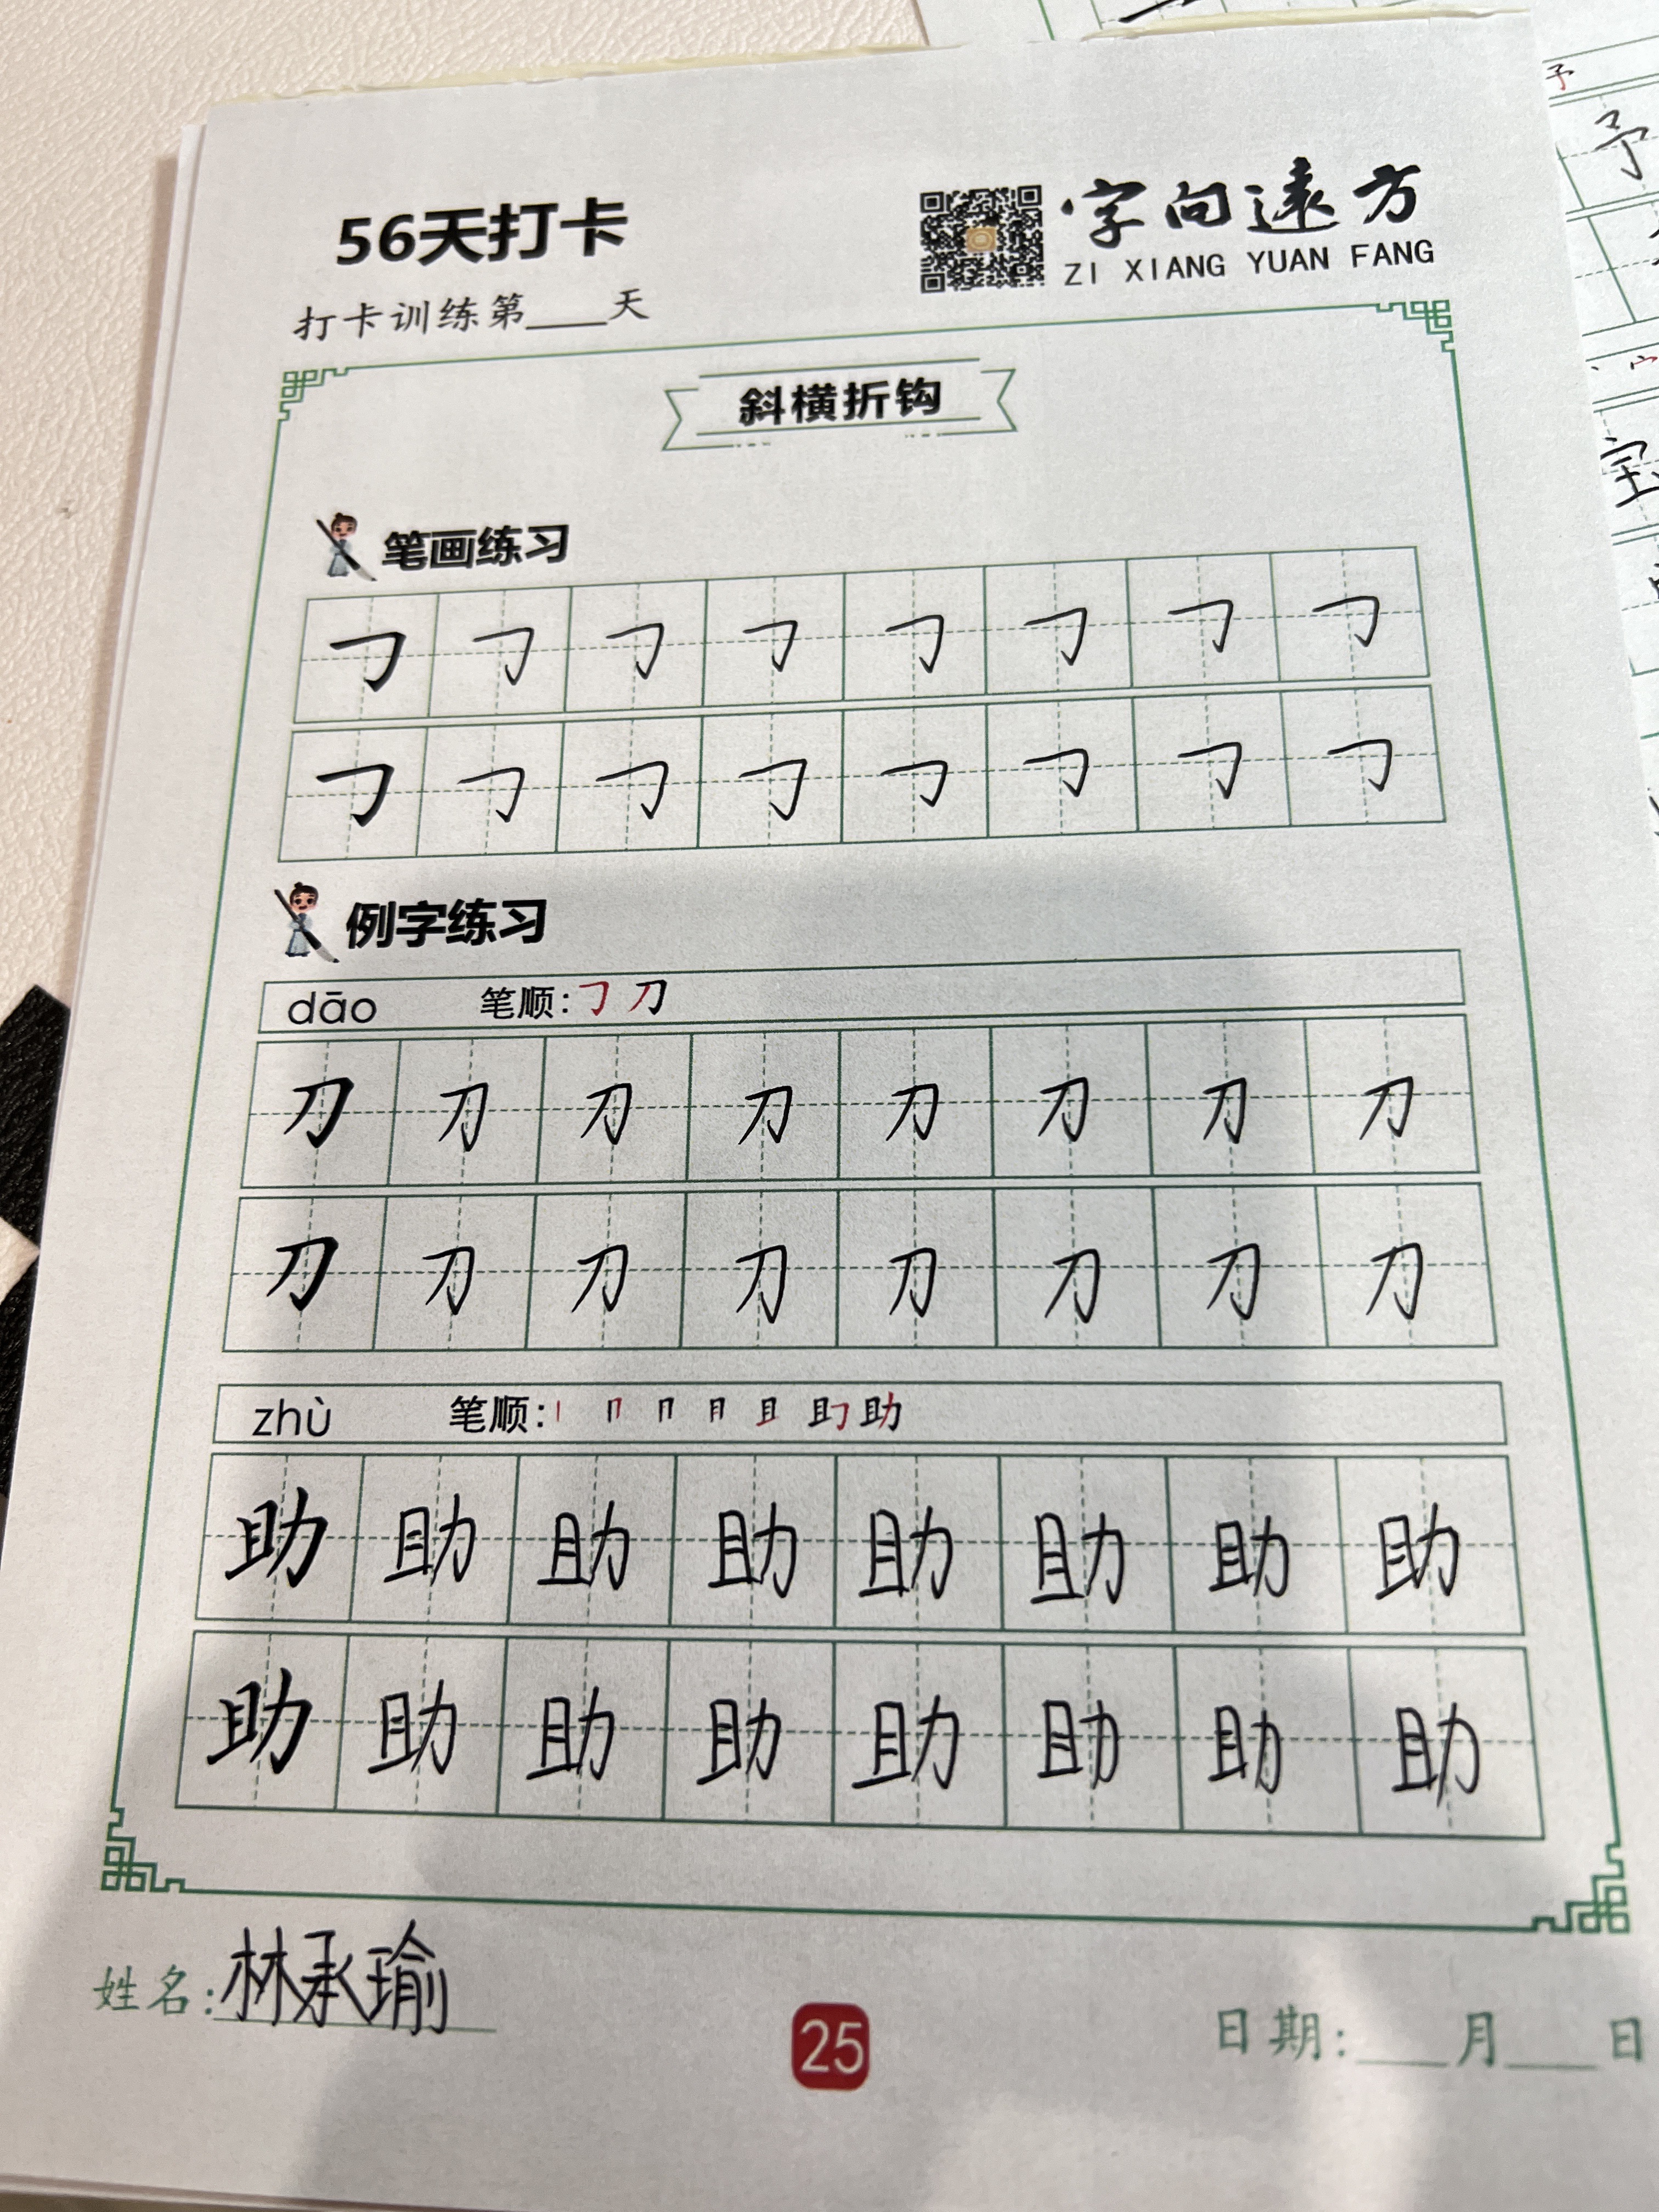 56天打卡
字向遠方
ZI XIANG YUAN FANG
打卡训练第____天
斜横折钩
笔画练习
例字练习
dāo 笔顺: 刀
刀 刀 刀 刀 刀 刀 刀 刀
刀 刀 刀 刀 刀 刀 刀 刀
zhù 笔顺: 丨 冂 冂 月 且 助
助 助 助 助 助 助 助 助
助 助 助 助 助 助 助 助
姓名:林承瑜
25
日期:____月____日
予
予
宝